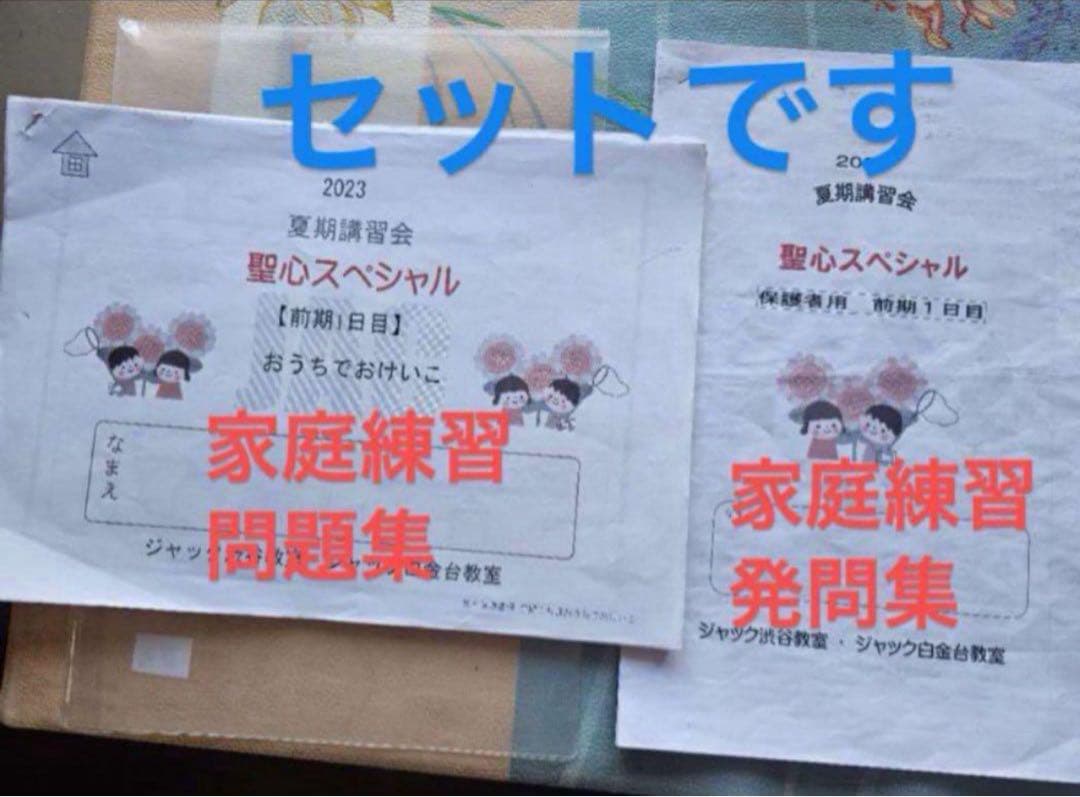 セットです
2023
夏期講習会
聖心スペシャル
【前期1日目】
おうちでおけいこ
なまえ
家庭練習
問題集
ジャック渋谷教室・ジャック白金台教室
20
夏期講習会
聖心スペシャル
保護者用 前期1日目
家庭練習
発問集
ジャック渋谷教室・ジャック白金台教室